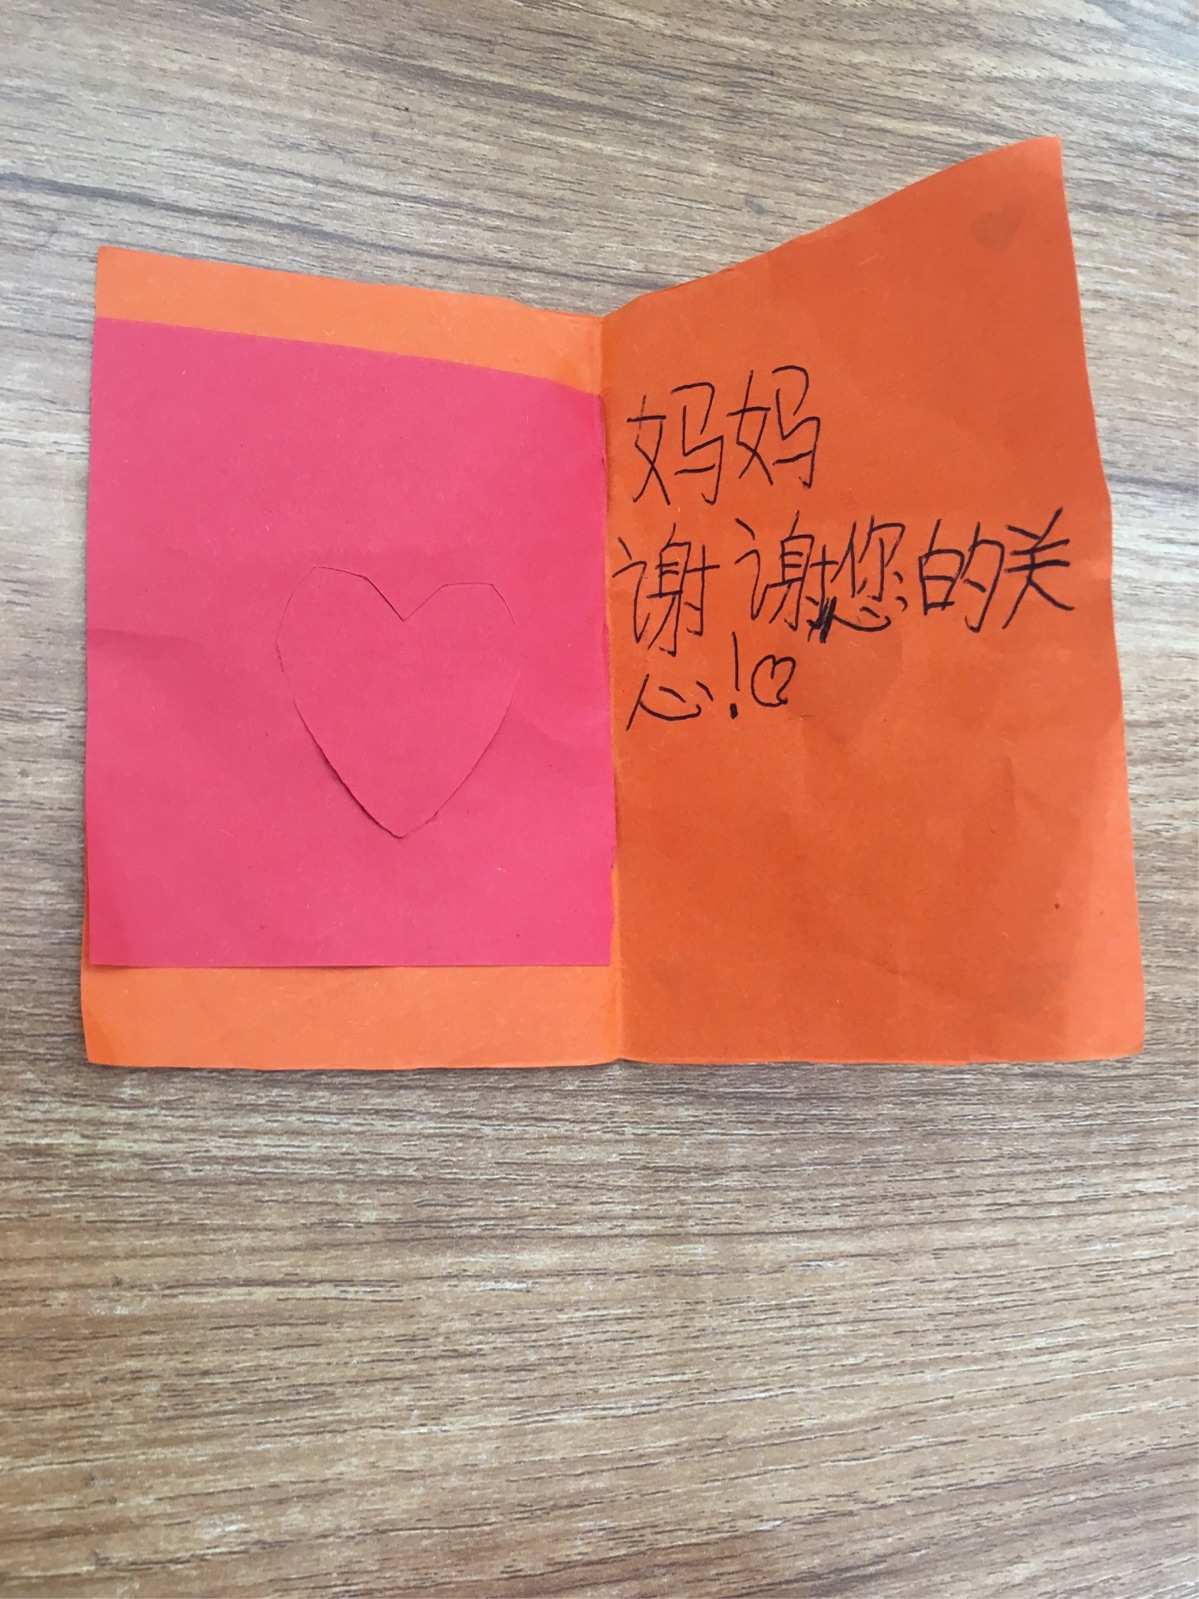 妈妈
谢谢您的关
心!♡